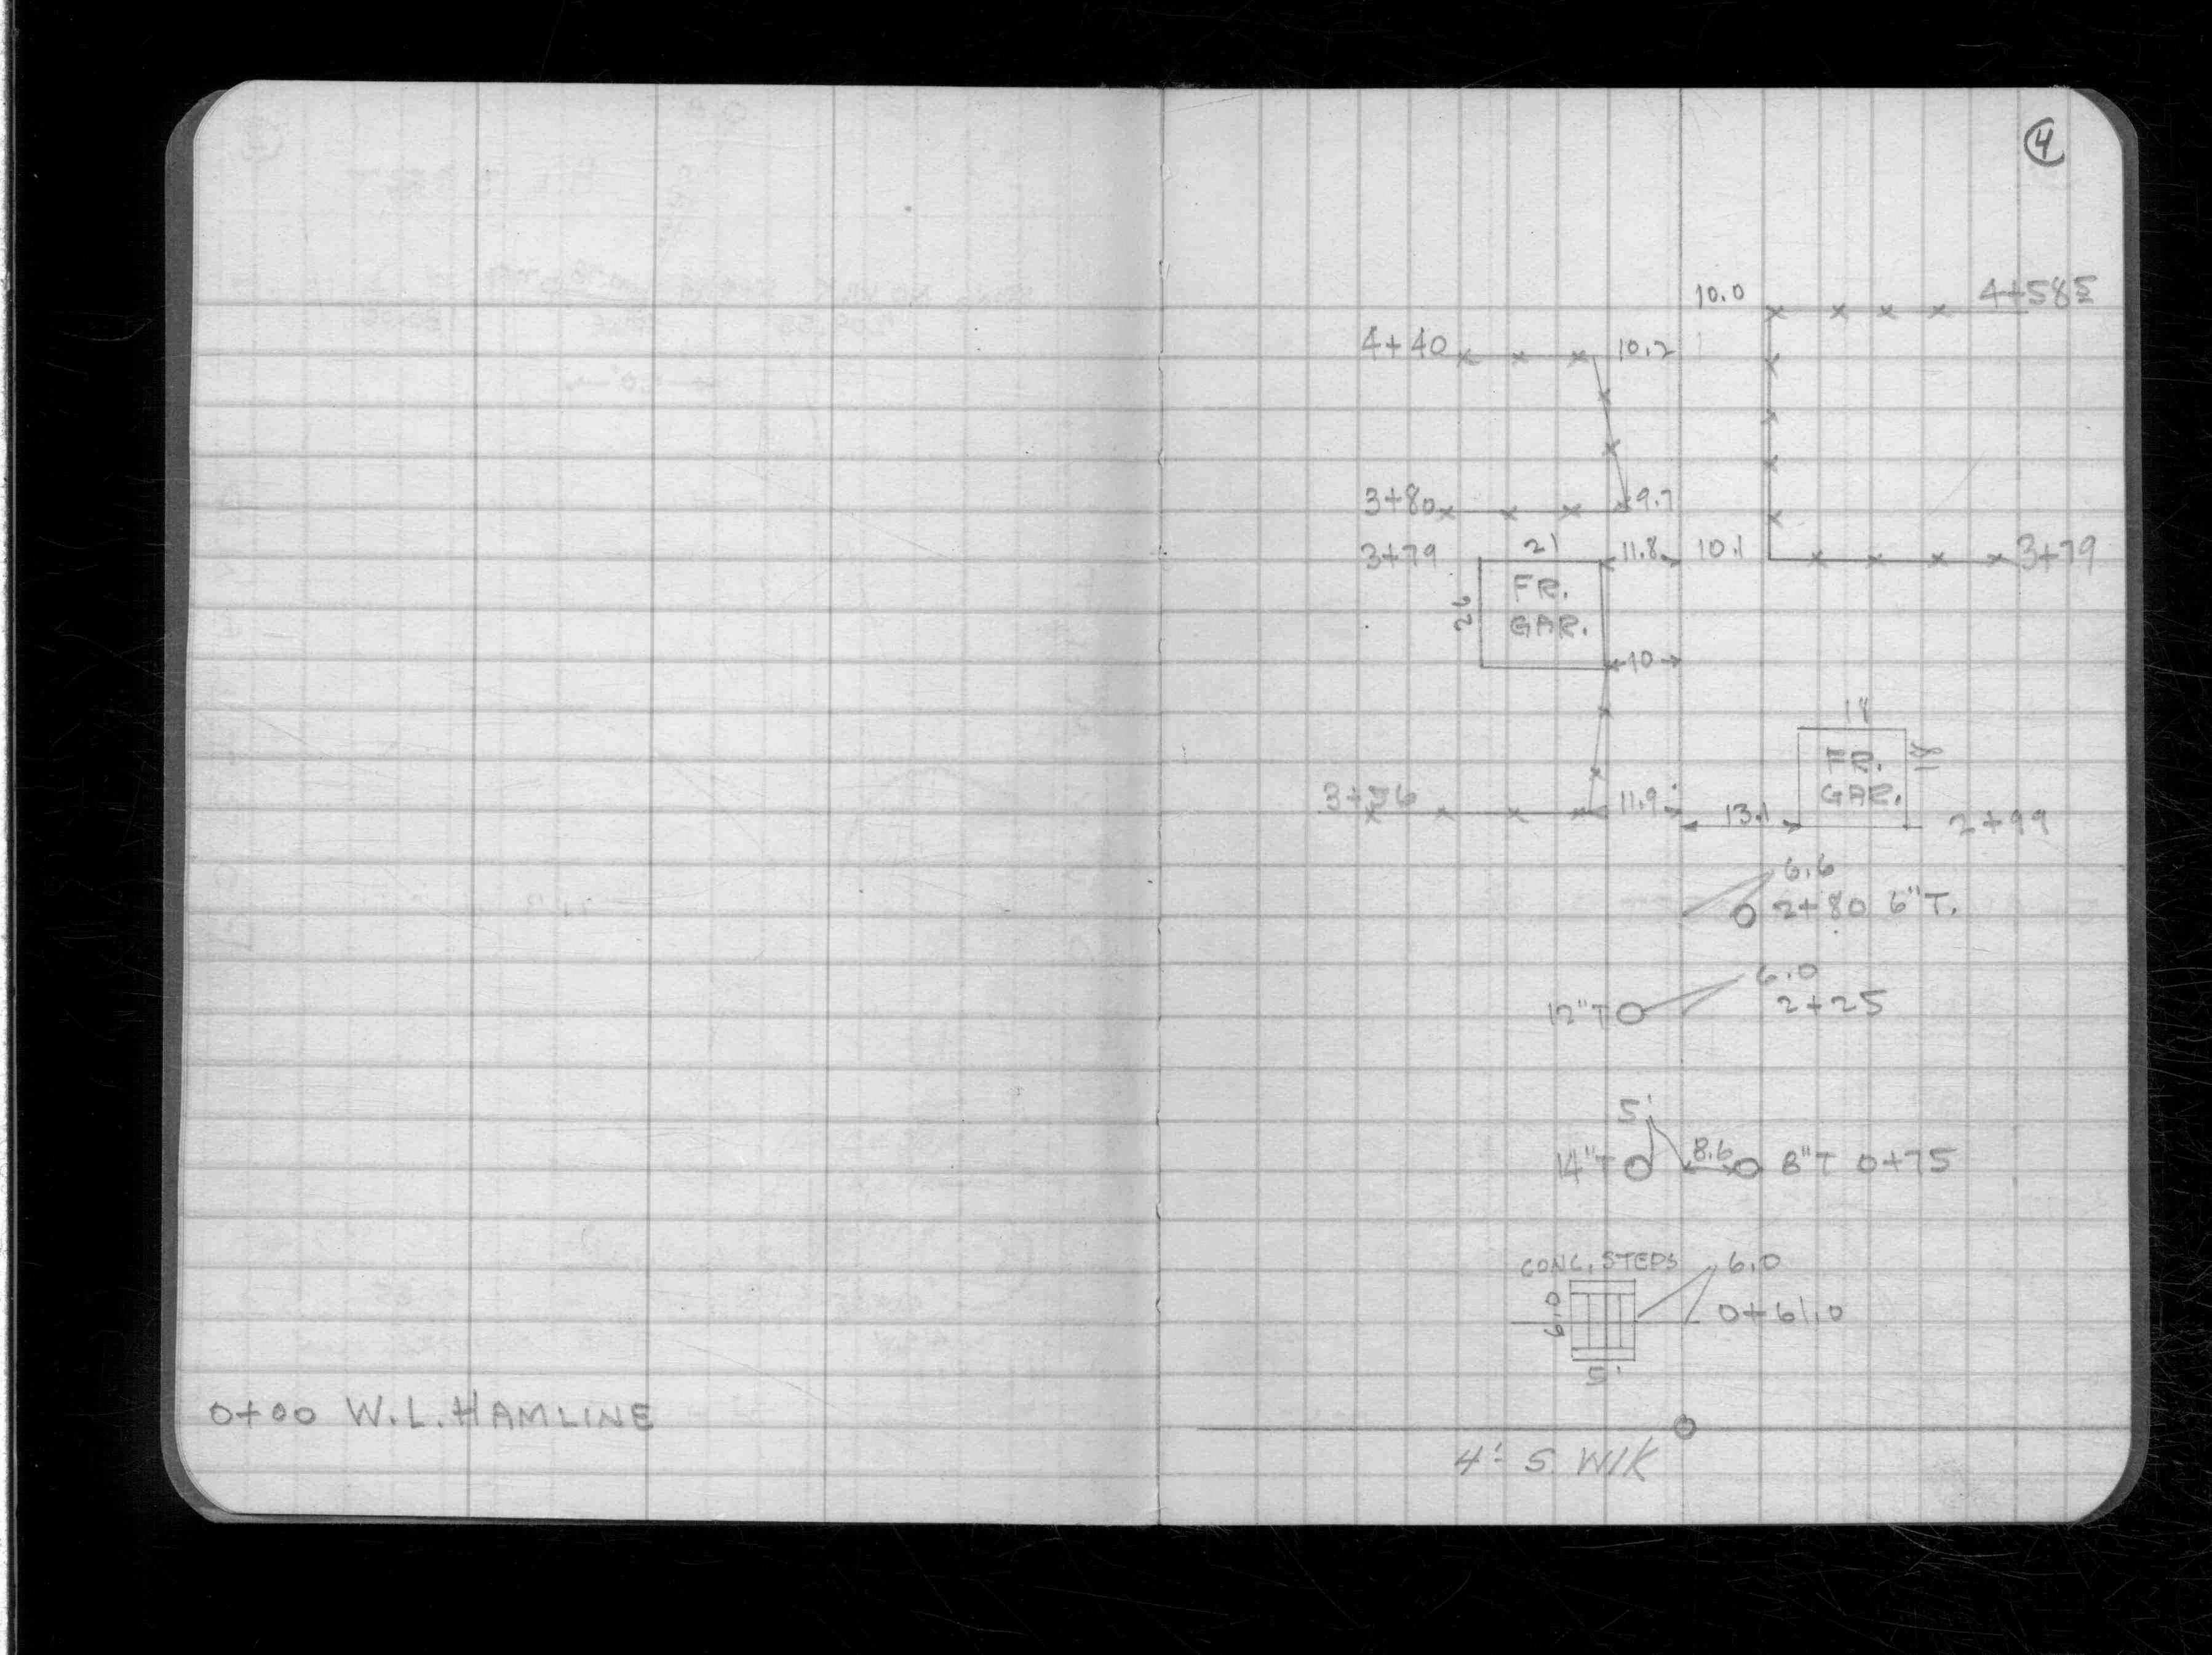 4
10.0 4+58⁵
4+40 10.2
3+80 9.7
3+79 21 11.8 10.1 3+79
26 FR.
GAR.
10
18
FR. 18
GAR.
11.9
13.1 2+99
6.6
2+80 6"T.
6.0
12"T 2+25
5'
14"T 8.6 8"T 0+75
CONC. STEPS 6.0
6.0 0+61.0
5'
0+00 W.L. HAMLINE
4' S. W/K